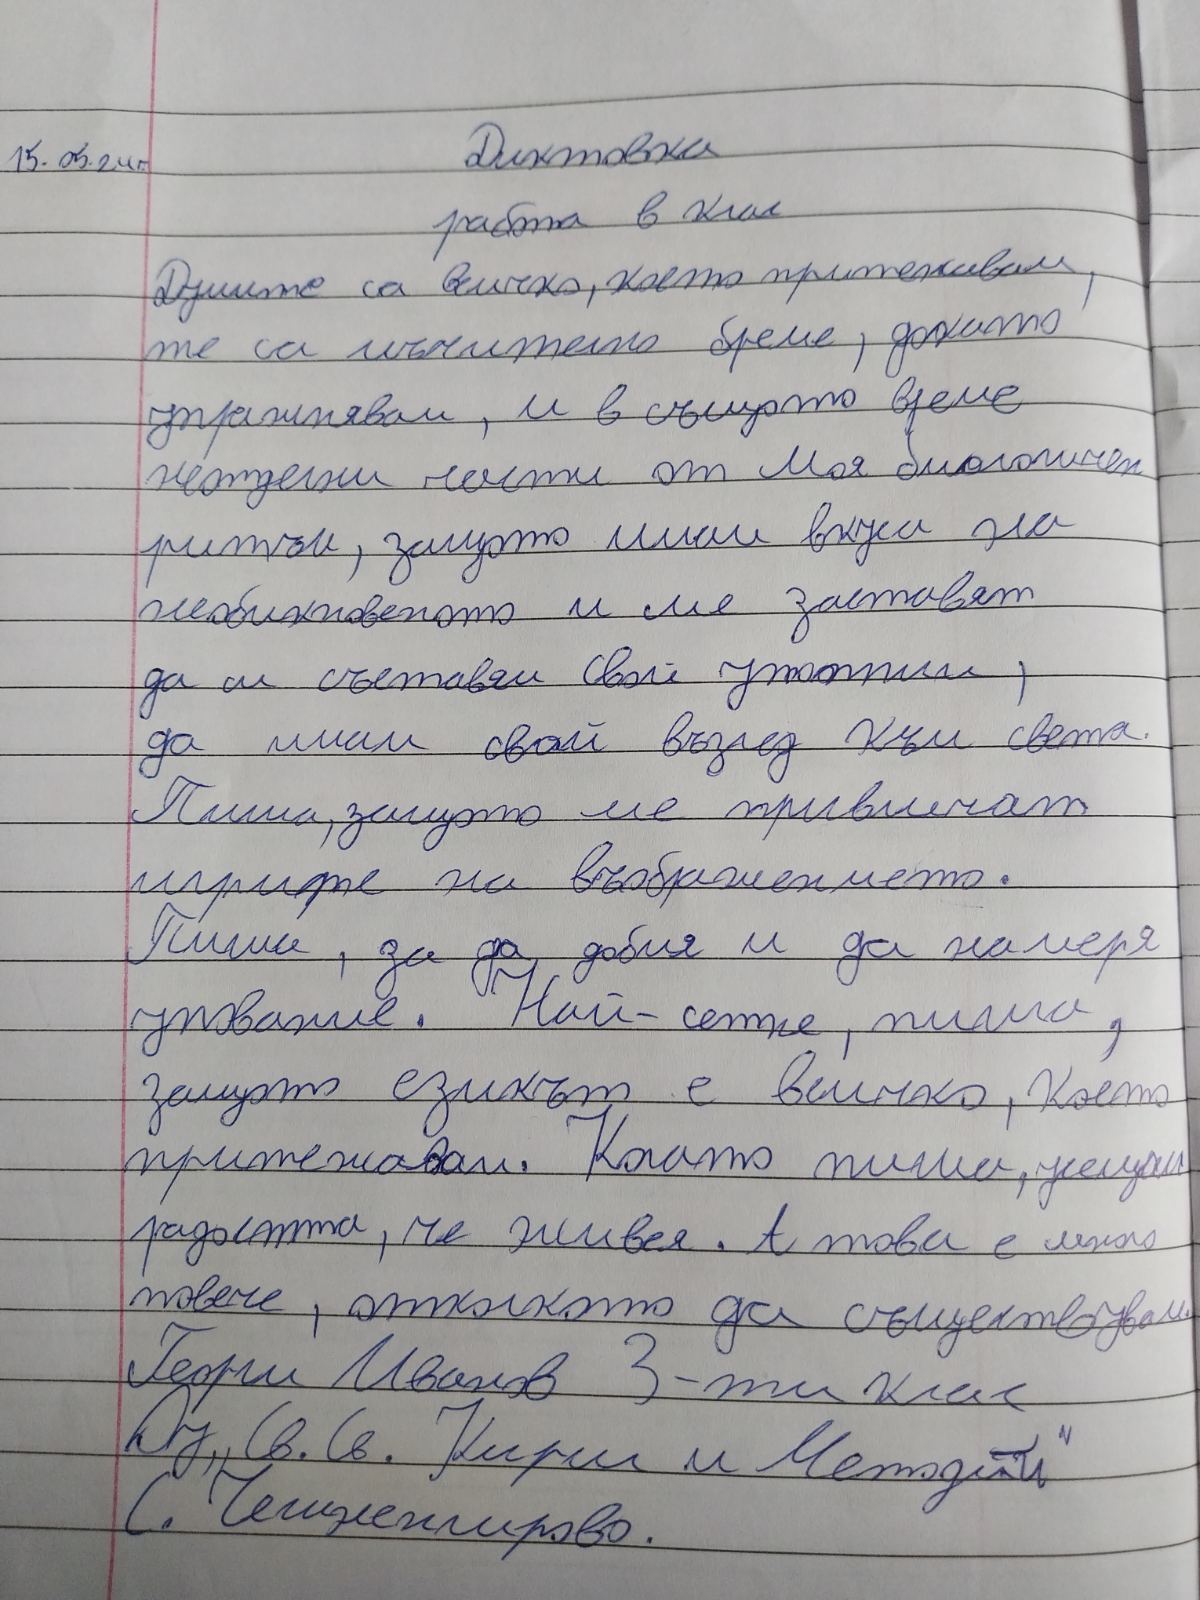 15.05.24г. Диктовка
работа в клас
Думите са всичко, което притежавам,
те са мъчително бреме, докато
упражнявам, и в същото време
неотделни части от моя биологичен
ритъм, защото имам вкуса на
необикновеното и ме заставят
да си съставям свои утопии,
да имам свой възглед към света.
Пиша, защото ме привличат
игрите на въображението.
Пиша, за да добия и да намеря
упование. Най-сетне, пиша,
защото езикът е всичко, което
притежавам. Когато пиша, усещам
радостта, че живея. А това е много
повече, отколкото да съществувам.
Георги Иванов 3-ти клас
Оу „Св. Св. Кирил и Методий"
С.